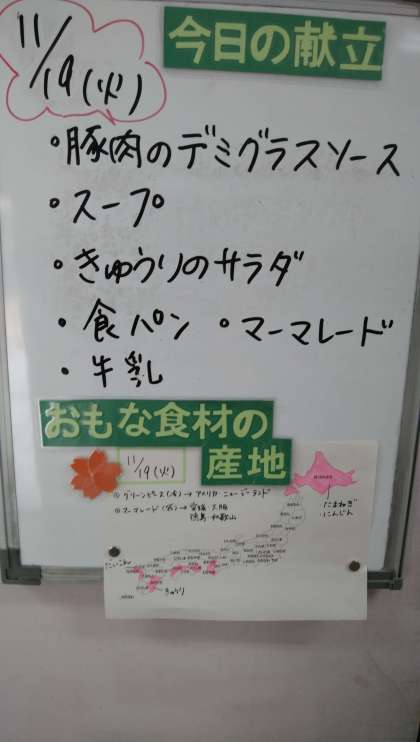 11/19(火)
今日の献立
・豚肉のデミグラスソース
・スープ
・きゅうりのサラダ
・食パン ・マーマレード
・牛乳
おもな食材の
産地
11/19(火)
→アメリカ ニュージーランド
マーマレード
→愛媛・大阪
徳島・和歌山
たまねぎ
にんじん
だいこん
きゅうり